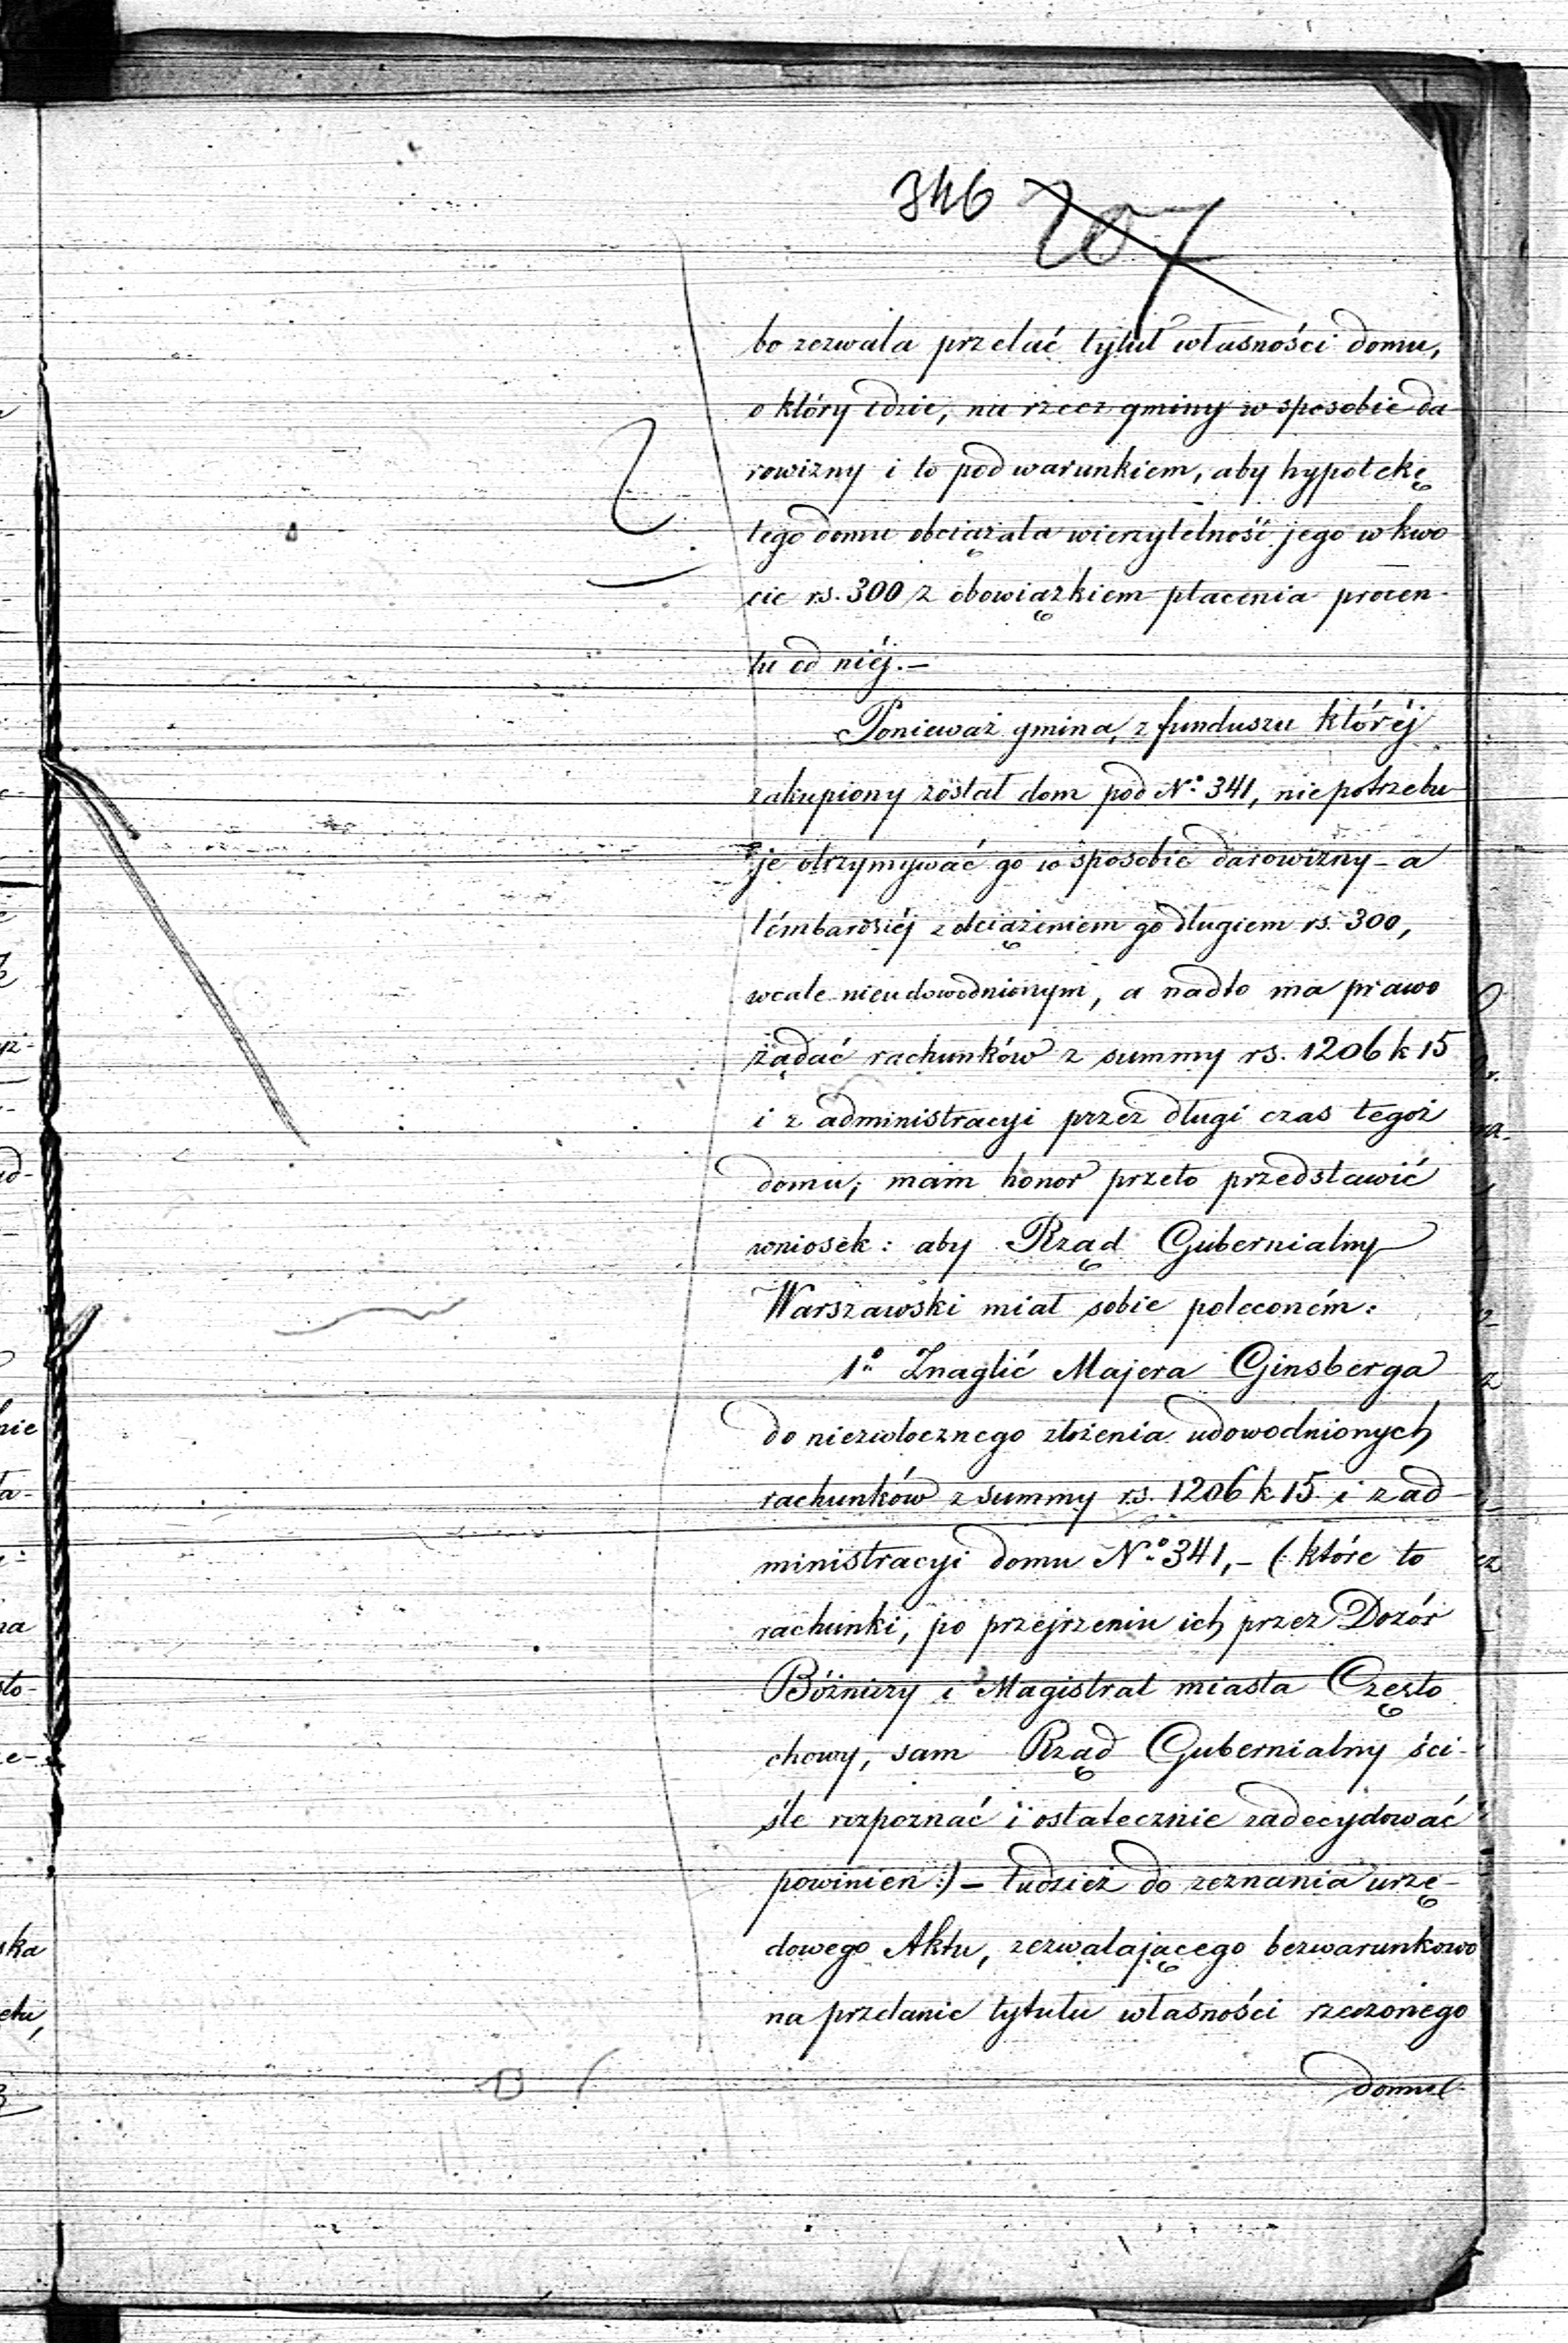 346 207
bo zezwala przelać tytuł własności domu,
o który idzie, na rzecz gminy w sposobie da
rowizny i to pod warunkiem, aby hypotekę
tego domu obciążała wierzytelność jego w kwo
cie rs. 300 z obowiązkiem płacenia procen-
tu od niéj.—
Ponieważ gmina, z funduszu któréj
zakupiony został dom pod No. 341, niepotrzebu
je otrzymywać go w sposobie darowizny - a
témbardziéj z obciążeniem go długiem rs. 300,
wcale nieudowodnionym, a nadto ma prawo
żądać rachunków z summy rs. 1206 k 15
i z administracyi przez długi czas tegoż
domu; mam honor przeto przedstawić
wniosek: aby Rząd Gubernialny
Warszawski miał sobie poleconém:
1o Znaglić Majera Ginsberga
do niezwłocznego złożenia udowodnionych
rachunków z summy rs. 1206 k 15 i z ad-
ministracyi domu No 341,- (: które to
rachunki, po przejrzeniu ich przez Dozór
Bóżniczy i Magistrat miasta Często
chowy, sam Rząd Gubernialny ści-
śle rozpoznać i ostatecznie zadecydować
powinien :) — tudzież do zeznania urzę-
dowego Aktu, zezwalającego bezwarunkowo
na przelanie tytułu własności rzeczonego
domu